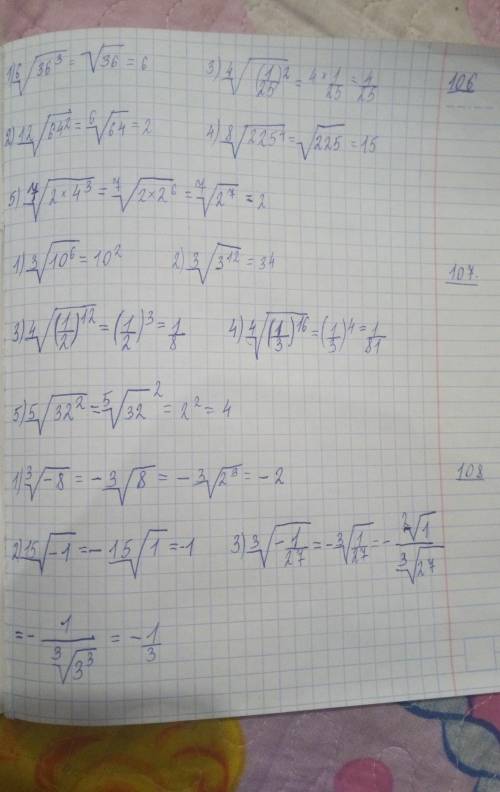 1) ⁶√36³ = √36 = 6 3) ⁴√(1/25)² = 4×1/25 = 4/25 106
2) ¹²√64² = ⁶√64 = 2 4) ⁸√225⁴ = √225 = 15
5) ⁷√2×4³ = ⁷√2×2⁶ = ⁷√2⁷ = 2
1) ³√10⁶ = 10² 2) ³√3¹² = 34 107.
3) ⁴√(1/2)¹² = (1/2)³ = 1/8 4) ⁴√(1/3)¹⁶ = (1/3)⁴ = 1/81
5) ⁵√32² = ⁵√32² = 2² = 4
1) ³√-8 = -³√8 = -³√2³ = -2 108
2) ¹⁵√-1 = -¹⁵√1 = -1 3) ³√-1/27 = -³√1/27 = -³√1/³√27
= -1/³√3³ = -1/3